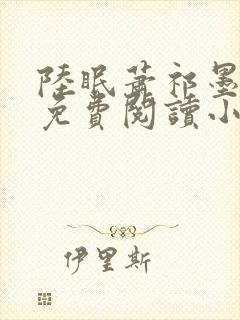 陸眠蕭祁墨
免費閱讀小
伊里斯